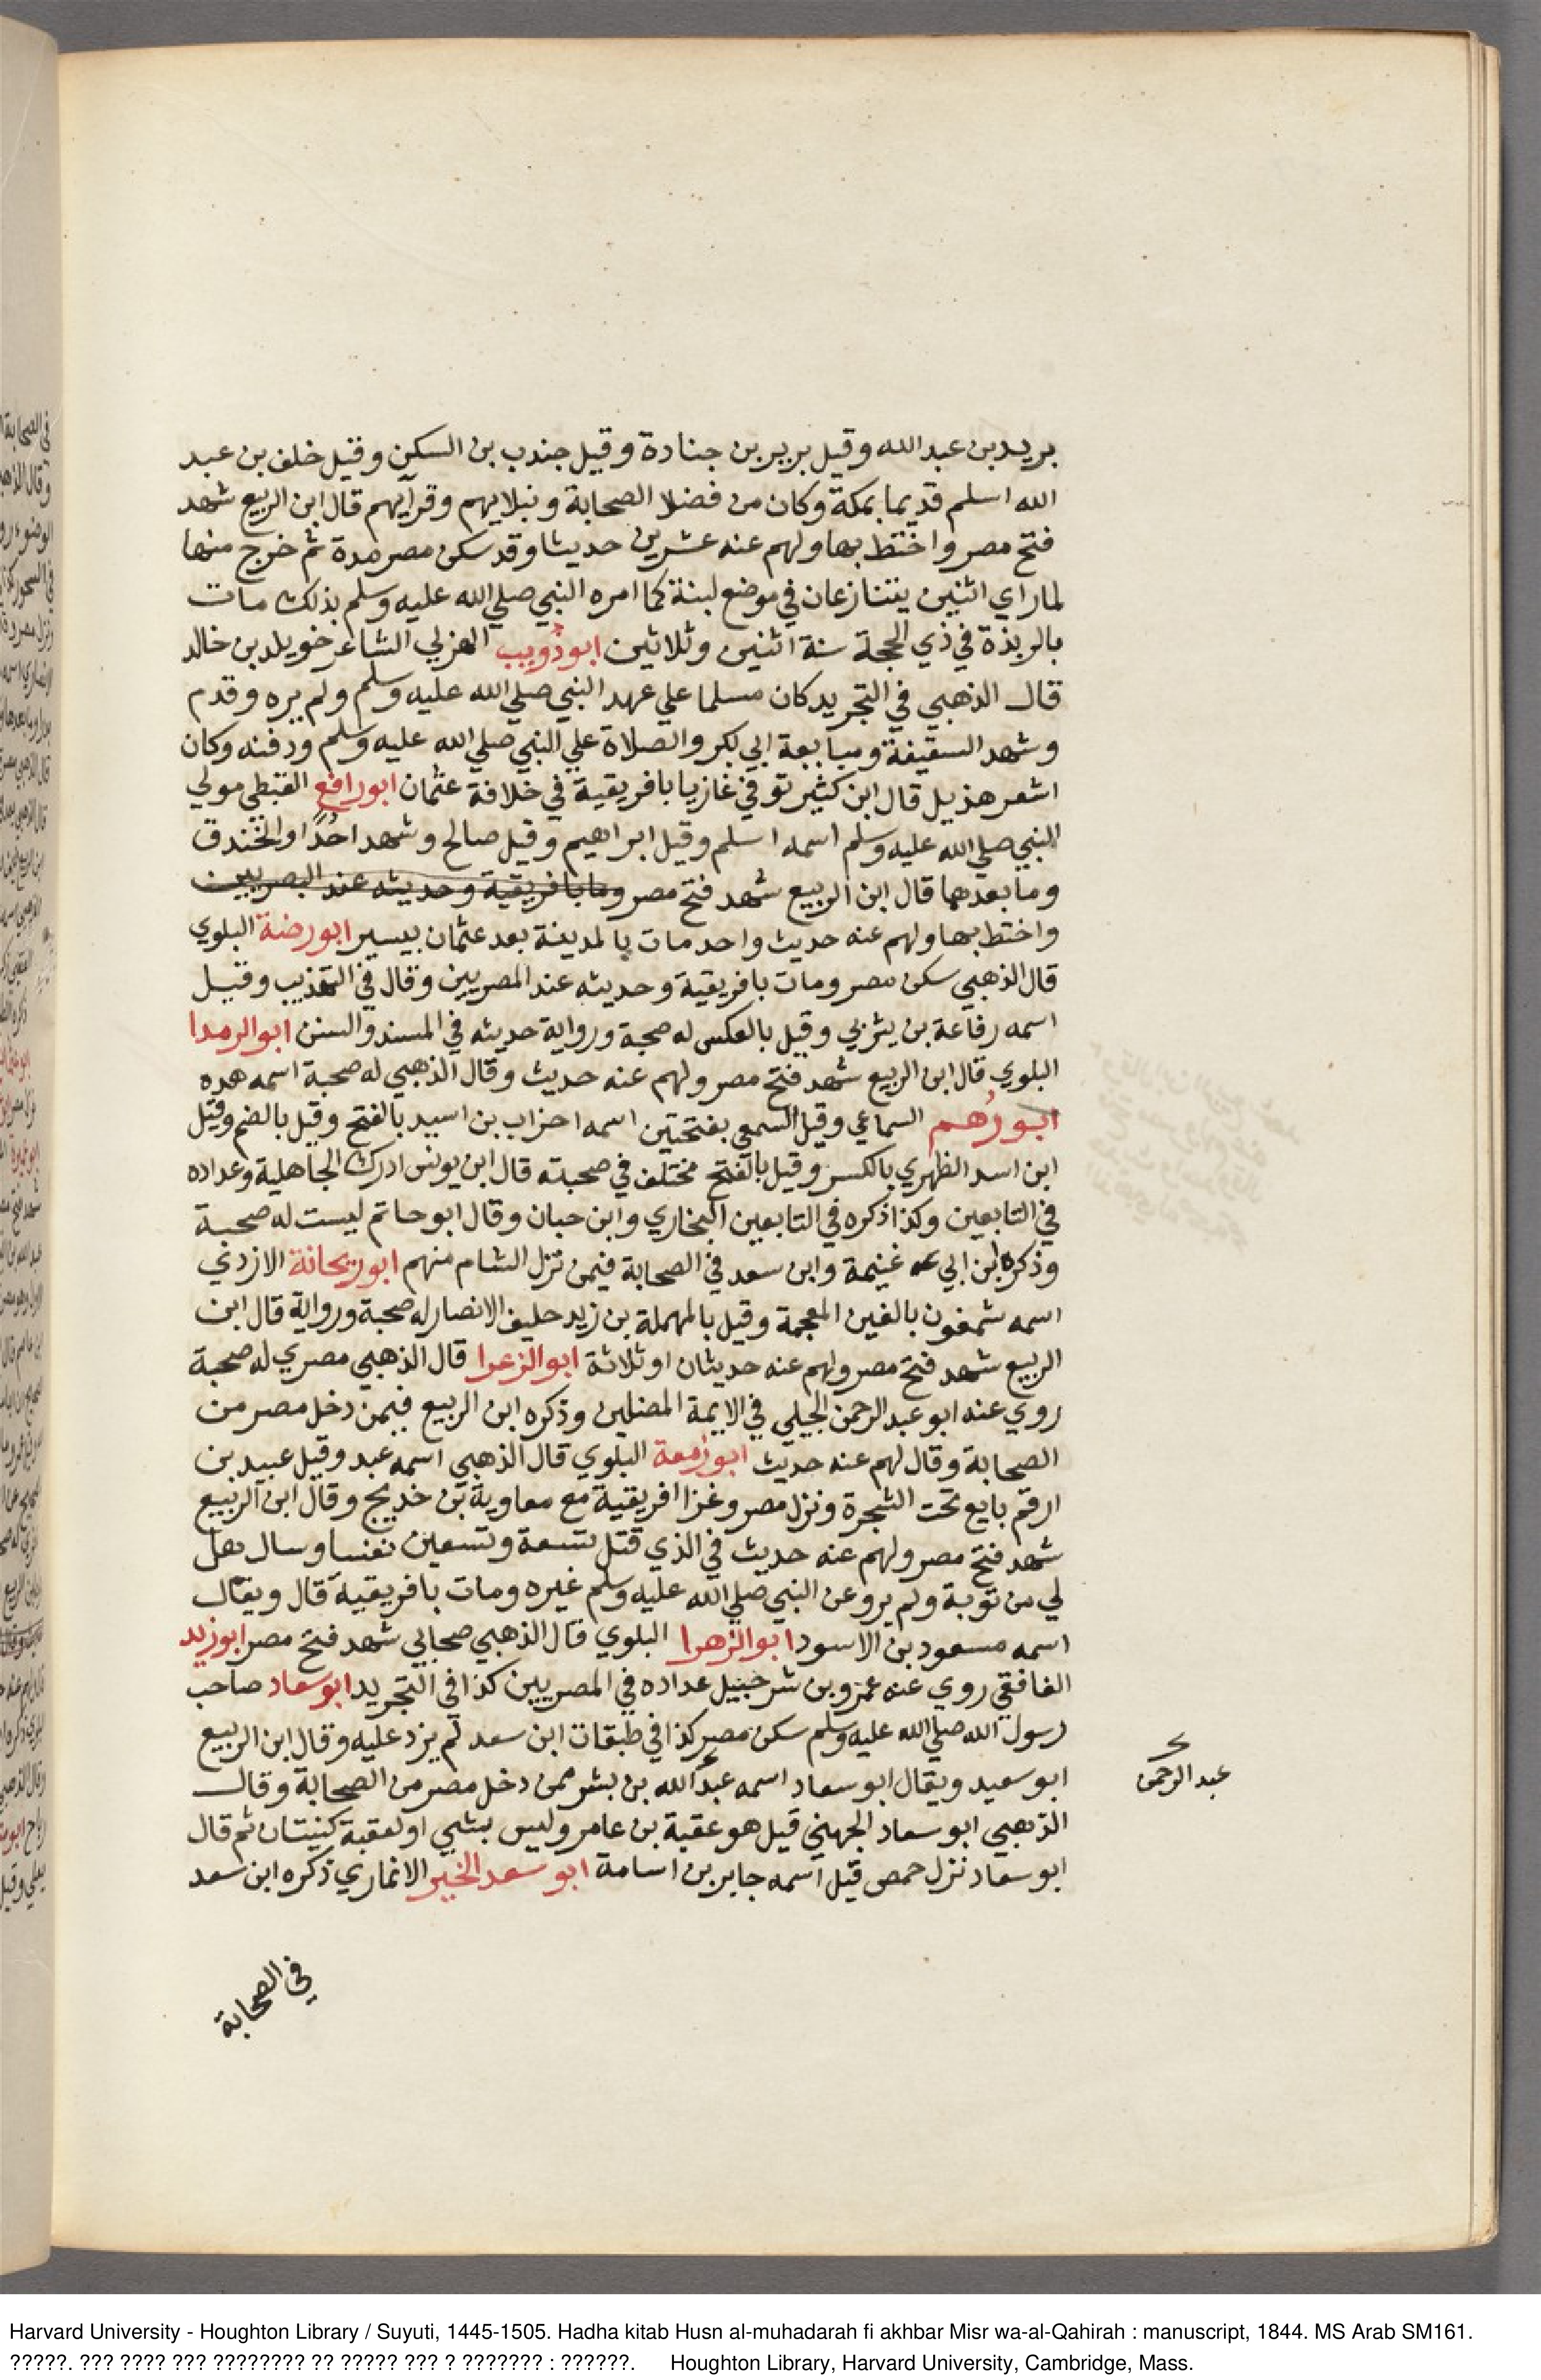 بريد بن عبد الله وقيل برير بن جنادة وقيل جندب بن السكن وقيل خلف بن عبد
الله اسلم قديما بمكة وكان من فضلا الصحابة ونبلايهم وقرآيهم قال ابن الربيع شهد
فتح مصر واختط بها ولهم عنه عشرين حديثا وقد سكن مصر مدة ثم خرج منها
لما راي اثنين يتنازعان في موضع لبنة كما امره النبي صلي الله عليه وسلم بذلك مات
بالربذة في ذي الحجة سنة اثنين وثلاثين ابو ذويب الهزلي الشاعر خويلد بن خالد
قال الذهبي في التجريد كان مسلما علي عهد النبي صلي الله عليه وسلم ولم يره وقدم
وشهد السقيفة ومبايعة ابي بكر والصلاة علي النبي صلي الله عليه وسلم ودفنه وكان
اشعر هذيل قال ابن كثير توفي غازيا بافريقية في خلافة عثمان ابو رافع القبطي مولي
النبي صلي الله عليه وسلم اسمه اسلم وقيل ابراهيم وقيل صالح وشهد احدًا والخندق
وما بعدهما قال ابن الربيع شهد فتح مصر وما بافريقية وحديثه عند البصريين
واختط بها ولهم عنه حديث واحد مات بالمدينة بعد عثمان بيسير ابو رضة البلوي
قال الذهبي سكن مصر ومات بافريقية وحديثه عند المصريين وقال في التهذيب وقيل
اسمه رفاعة بن يثربي وقيل بالعكس له صحبة ورواية حديثه في المسند والسنن ابو الرمدا
البلوي قال ابن الربيع شهد فتح مصر ولهم عنه حديث وقال الذهبي له صحبة اسمه هده
ابو رُهم السماعي وقيل السمعي بفتحتين اسمه احزاب بن اسيد بالفتح وقيل بالضم وقيل
ابن اسد الظهري بالكسر وقيل بالفتح مختلف في صحبته قال ابن يونس ادرك الجاهلية وعداده
في التابعين وكذا ذكره في التابعين البخاري وابن حبان وقال ابو حاتم ليست له صحبة
وذكره ابن ابي غنيمة وابن سعد في الصحابة فيمن نزل الشام منهم ابو ريحانة الازدي
اسمه شمغون بالغين المعجمة وقيل بالمهملة بن زيد حليف الانصار له صحبة ورواية قال ابن
الربيع شهد فتح مصر ولهم عنه حديثان او ثلاثة ابو الزعرا قال الذهبي مصري له صحبة
روي عنه ابو عبد الرحمن الجبلي في الايمة المضلين وذكره ابن الربيع فيمن دخل مصر من
الصحابة وقال لهم عنه حديث ابو زمعة البلوي قال الذهبي اسمه عبد وقيل عبيد بن
ارقم بايع تحت الشجرة ونزل مصر وغزا افريقية مع معاوية بن خديج وقال ابن الربيع
شهد فتح مصر ولهم عنه حديث في الذي قتل تسعة وتسعين نفسا وسال هل
لي من توبة ولم يرو عن النبي صلي الله عليه وسلم غيره ومات بافريقية قال ويقال
اسمه مسعود بن الاسود ابو الزهرا البلوي قال الذهبي صحابي شهد فتح مصر ابو زيد
الغافقي روي عنه عمرو بن شرحبيل عداده في المصريين كذا في التجريد ابو سعاد صاحب
رسول الله صلي الله عليه وسلم سكن مصر كذا في طبقات ابن سعد لم يزد عليه وقال ابن الربيع
ابو سعيد ويقال ابو سعاد اسمه عبد الله بن بشر ممن دخل مصر من الصحابة وقال
عبد الرحمن
الذهبي ابو سعاد الجهني قيل هو عقبة بن عامر وليس بشي او لعقبة كنيتان ثم قال
ابو سعاد نزل حمص قيل اسمه جابر بن اسامة ابو سعد الخير الانماري ذكره ابن سعد
في الصحابة
Harvard University - Houghton Library / Suyuti, 1445-1505. Hadha kitab Husn al-muhadarah fi akhbar Misr wa-al-Qahirah : manuscript, 1844. MS Arab SM161.
?????. ??? ???? ??? ???????? ?? ????? ??? ? ??????? : ??????. Houghton Library, Harvard University, Cambridge, Mass.